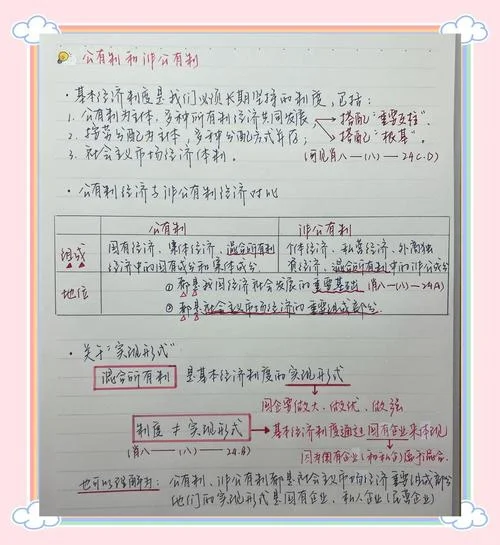 公有制和非公有制
·基本经济制度是我们必须长期坚持的制度,包括:
1. 公有制为主体,多种所有制经济共同发展 → 搭配"重要支柱"
2. 按劳分配为主体,多种分配方式并存; 搭配"根基"
3. 社会主义市场经济体制。 (可见肖八一(八)一24C.D)
·公有制经济与非公有制经济对比
公有制 非公有制
组成 国有经济、集体经济、混合所有制 个体经济、私营经济、外商独
经济中的国有成分和集体成分 资经济、混合所有制中的非公成分
地位 ①都是我国经济社会发展的重要基础 (肖八一(八)一24A)
②都是社会主义市场经济的重要组成部分
·关于"实现形式"
混合所有制 是基本经济制度的实现形式
国企要做大、做优、做强
制度≠实现形式 → 基本经济制度通过国有企业来体现
(肖八一(八)一24B)
(和私企)属于混合。
也可以理解为:公有制、非公有制都是社会主义市场经济重要组成部分
他们的实现形式是国有企业、私人企业(民营企业)